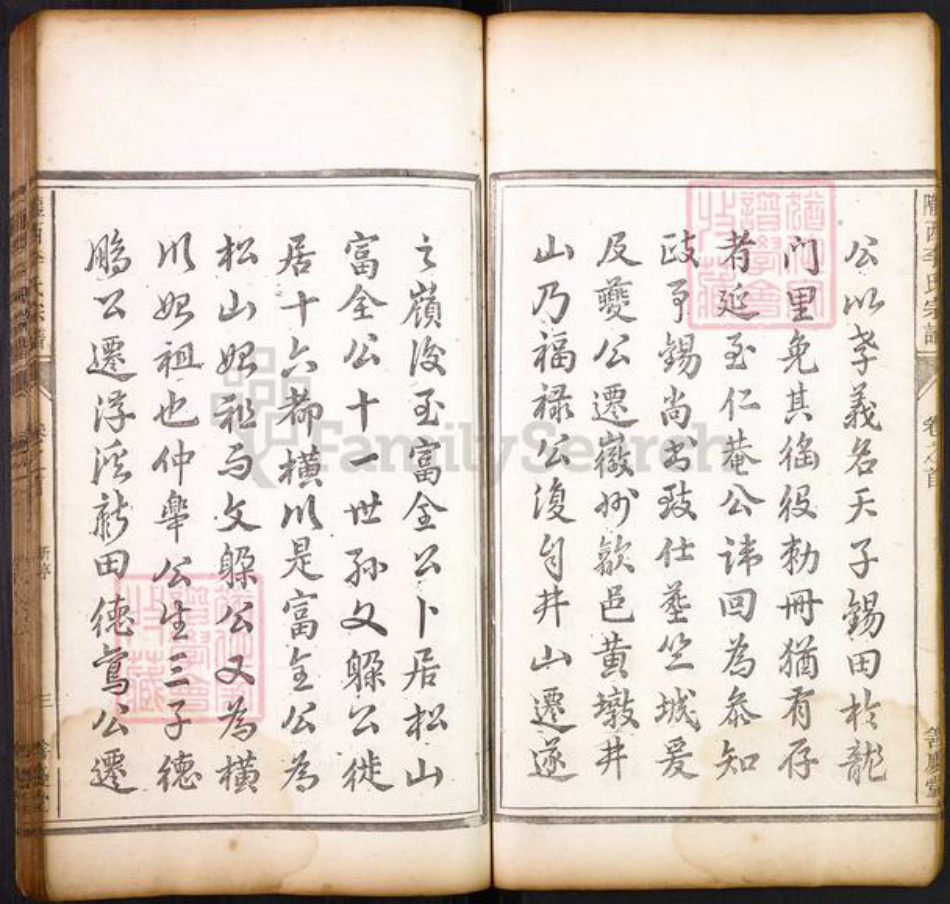 公以孝義名天子錫田於龍
門里免其徭役勅冊猶有存
者延至仁菴公諱回為叅知
政事錫尚書致仕塟竺城爰
及夔公遷徽州歙邑黃墩井
山乃福祿公復自井山遷遂
隴西李氏宗譜
卷之首
之嶺後至富全公卜居松山
富全公十一世孫文躲公徙
居十六都橫川是富全公為
松山始祖而文躲公又為橫
川始祖也仲舉公生三子德
鵬公遷浮溪新田德鴬公遷
隴西李氏宗譜
三
FamilySearch